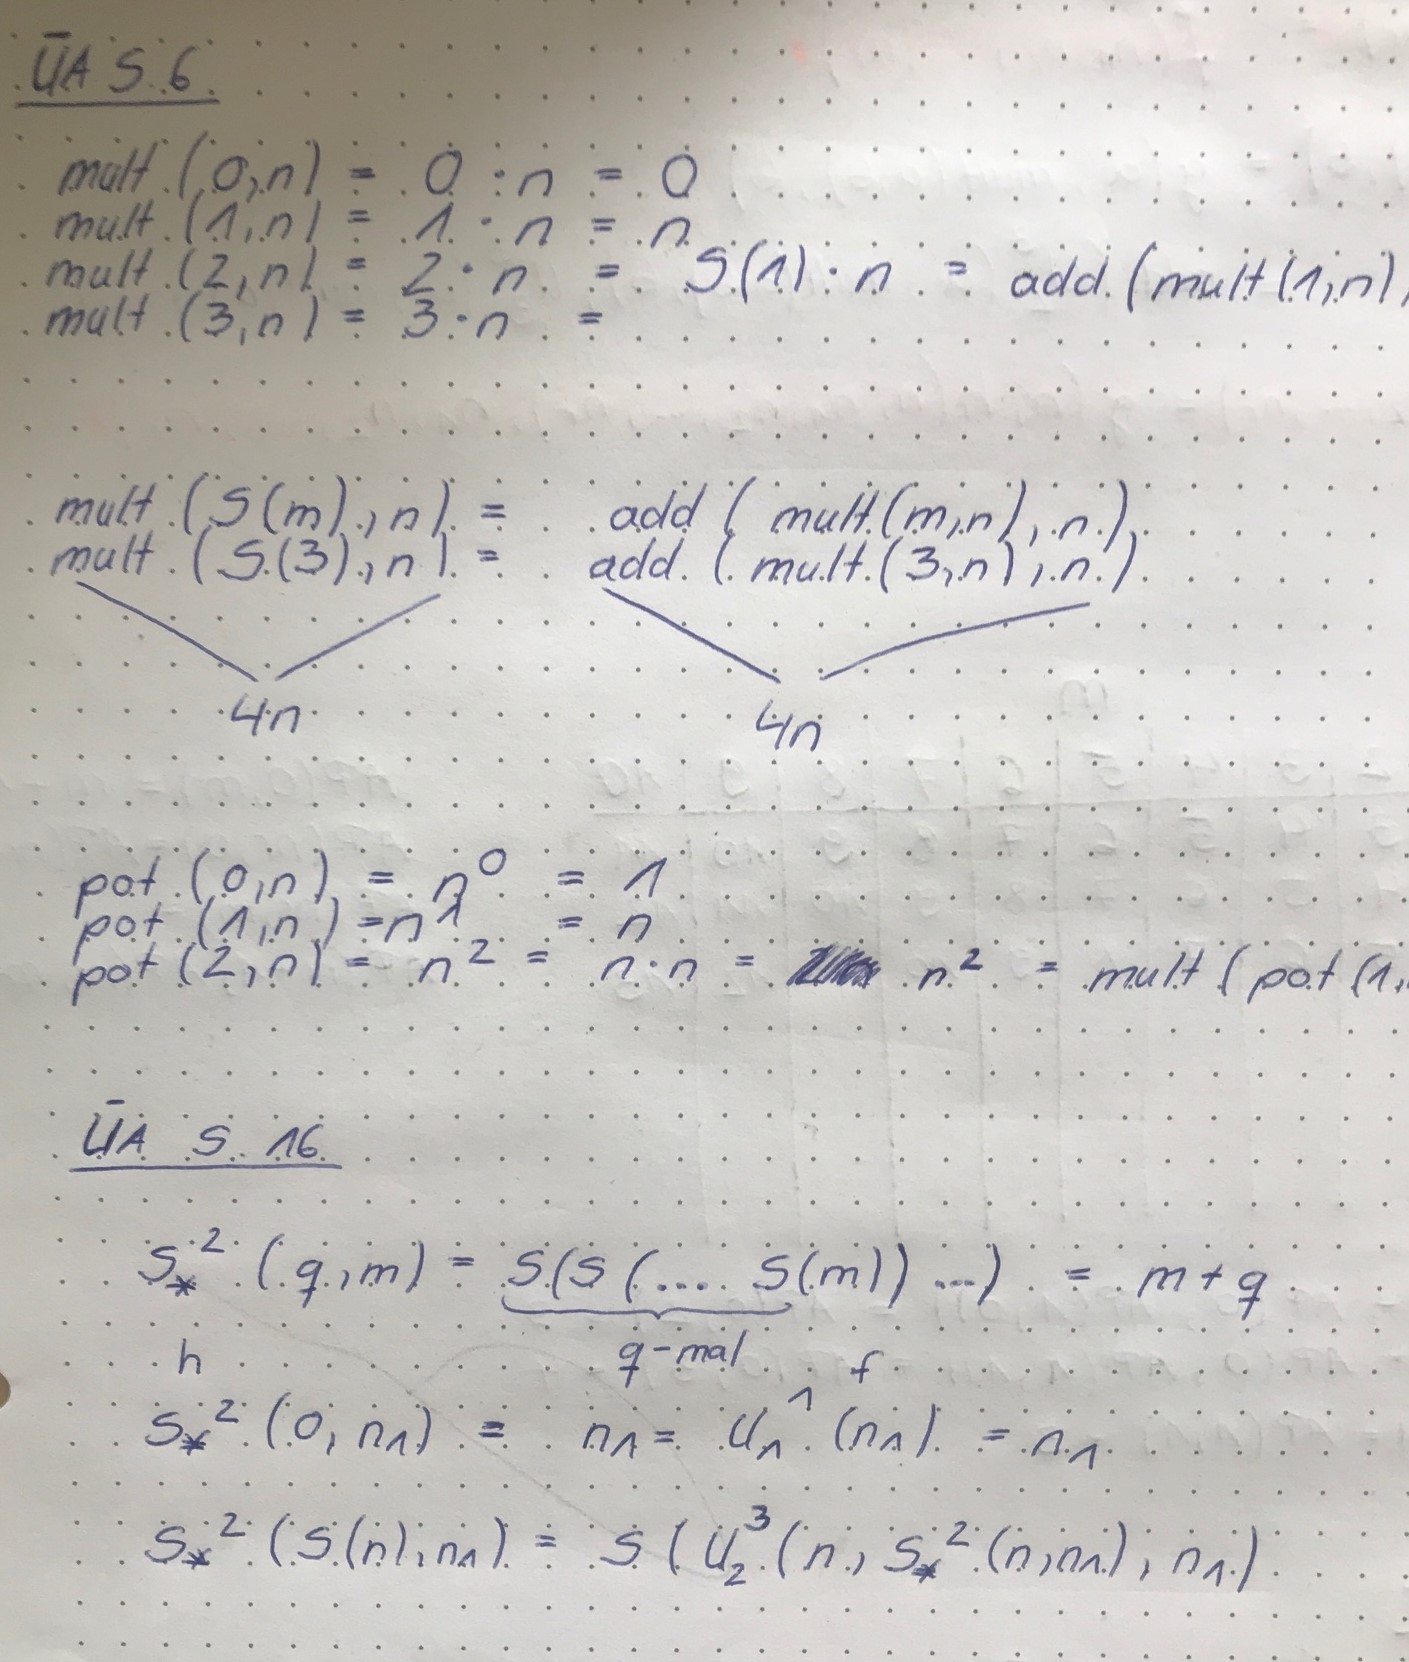 ÜA S. 6
mult (0,n) = 0 · n = 0
mult (1,n) = 1 · n = n
mult (2,n) = 2 · n = S(1) · n = add (mult(1,n),
mult (3,n) = 3 · n =
mult (S(m), n) = add ( mult (m,n), n )
mult (S(3), n) = add ( mult (3,n), n )
4n 4n
pot (0,n) = n⁰ = 1
pot (1,n) = n¹ = n
pot (2,n) = n² = n · n = n² = mult ( pot (1,
ÜA S. 16
S∗² (q,m) = S(S(.... S(m)) ...) = m + q
q-mal
h f
S∗² (0, n₁) = n₁ = U₁¹ (n₁) = n₁
S∗² (S(n), n₁) = S ( U₂³ (n, S∗² (n,n₁), n₁)